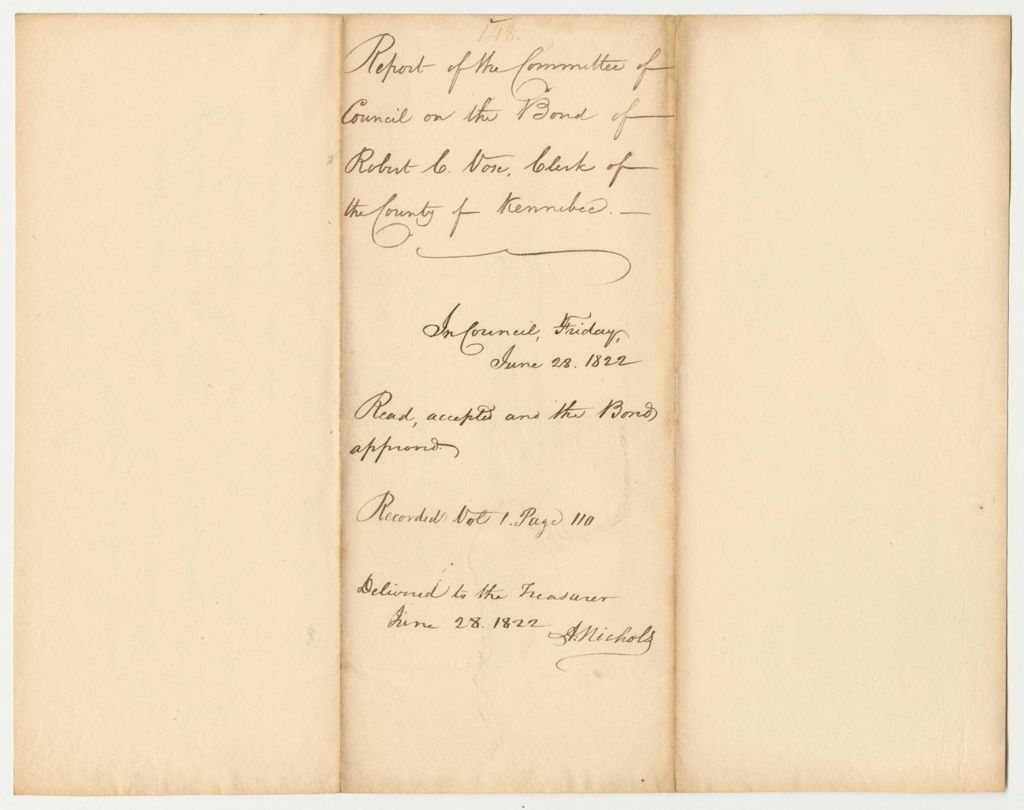 148.
Report of the Committee of
Council on the Bond of
Robert C. Vose, Clerk of
the County of Kennebec. —
In Council, Friday,
June 28. 1822
Read, accepted and the Bond
approved.
Recorded Vol 1. Page 110
Delivered to the Treasurer
June 28. 1822
A. Nichols